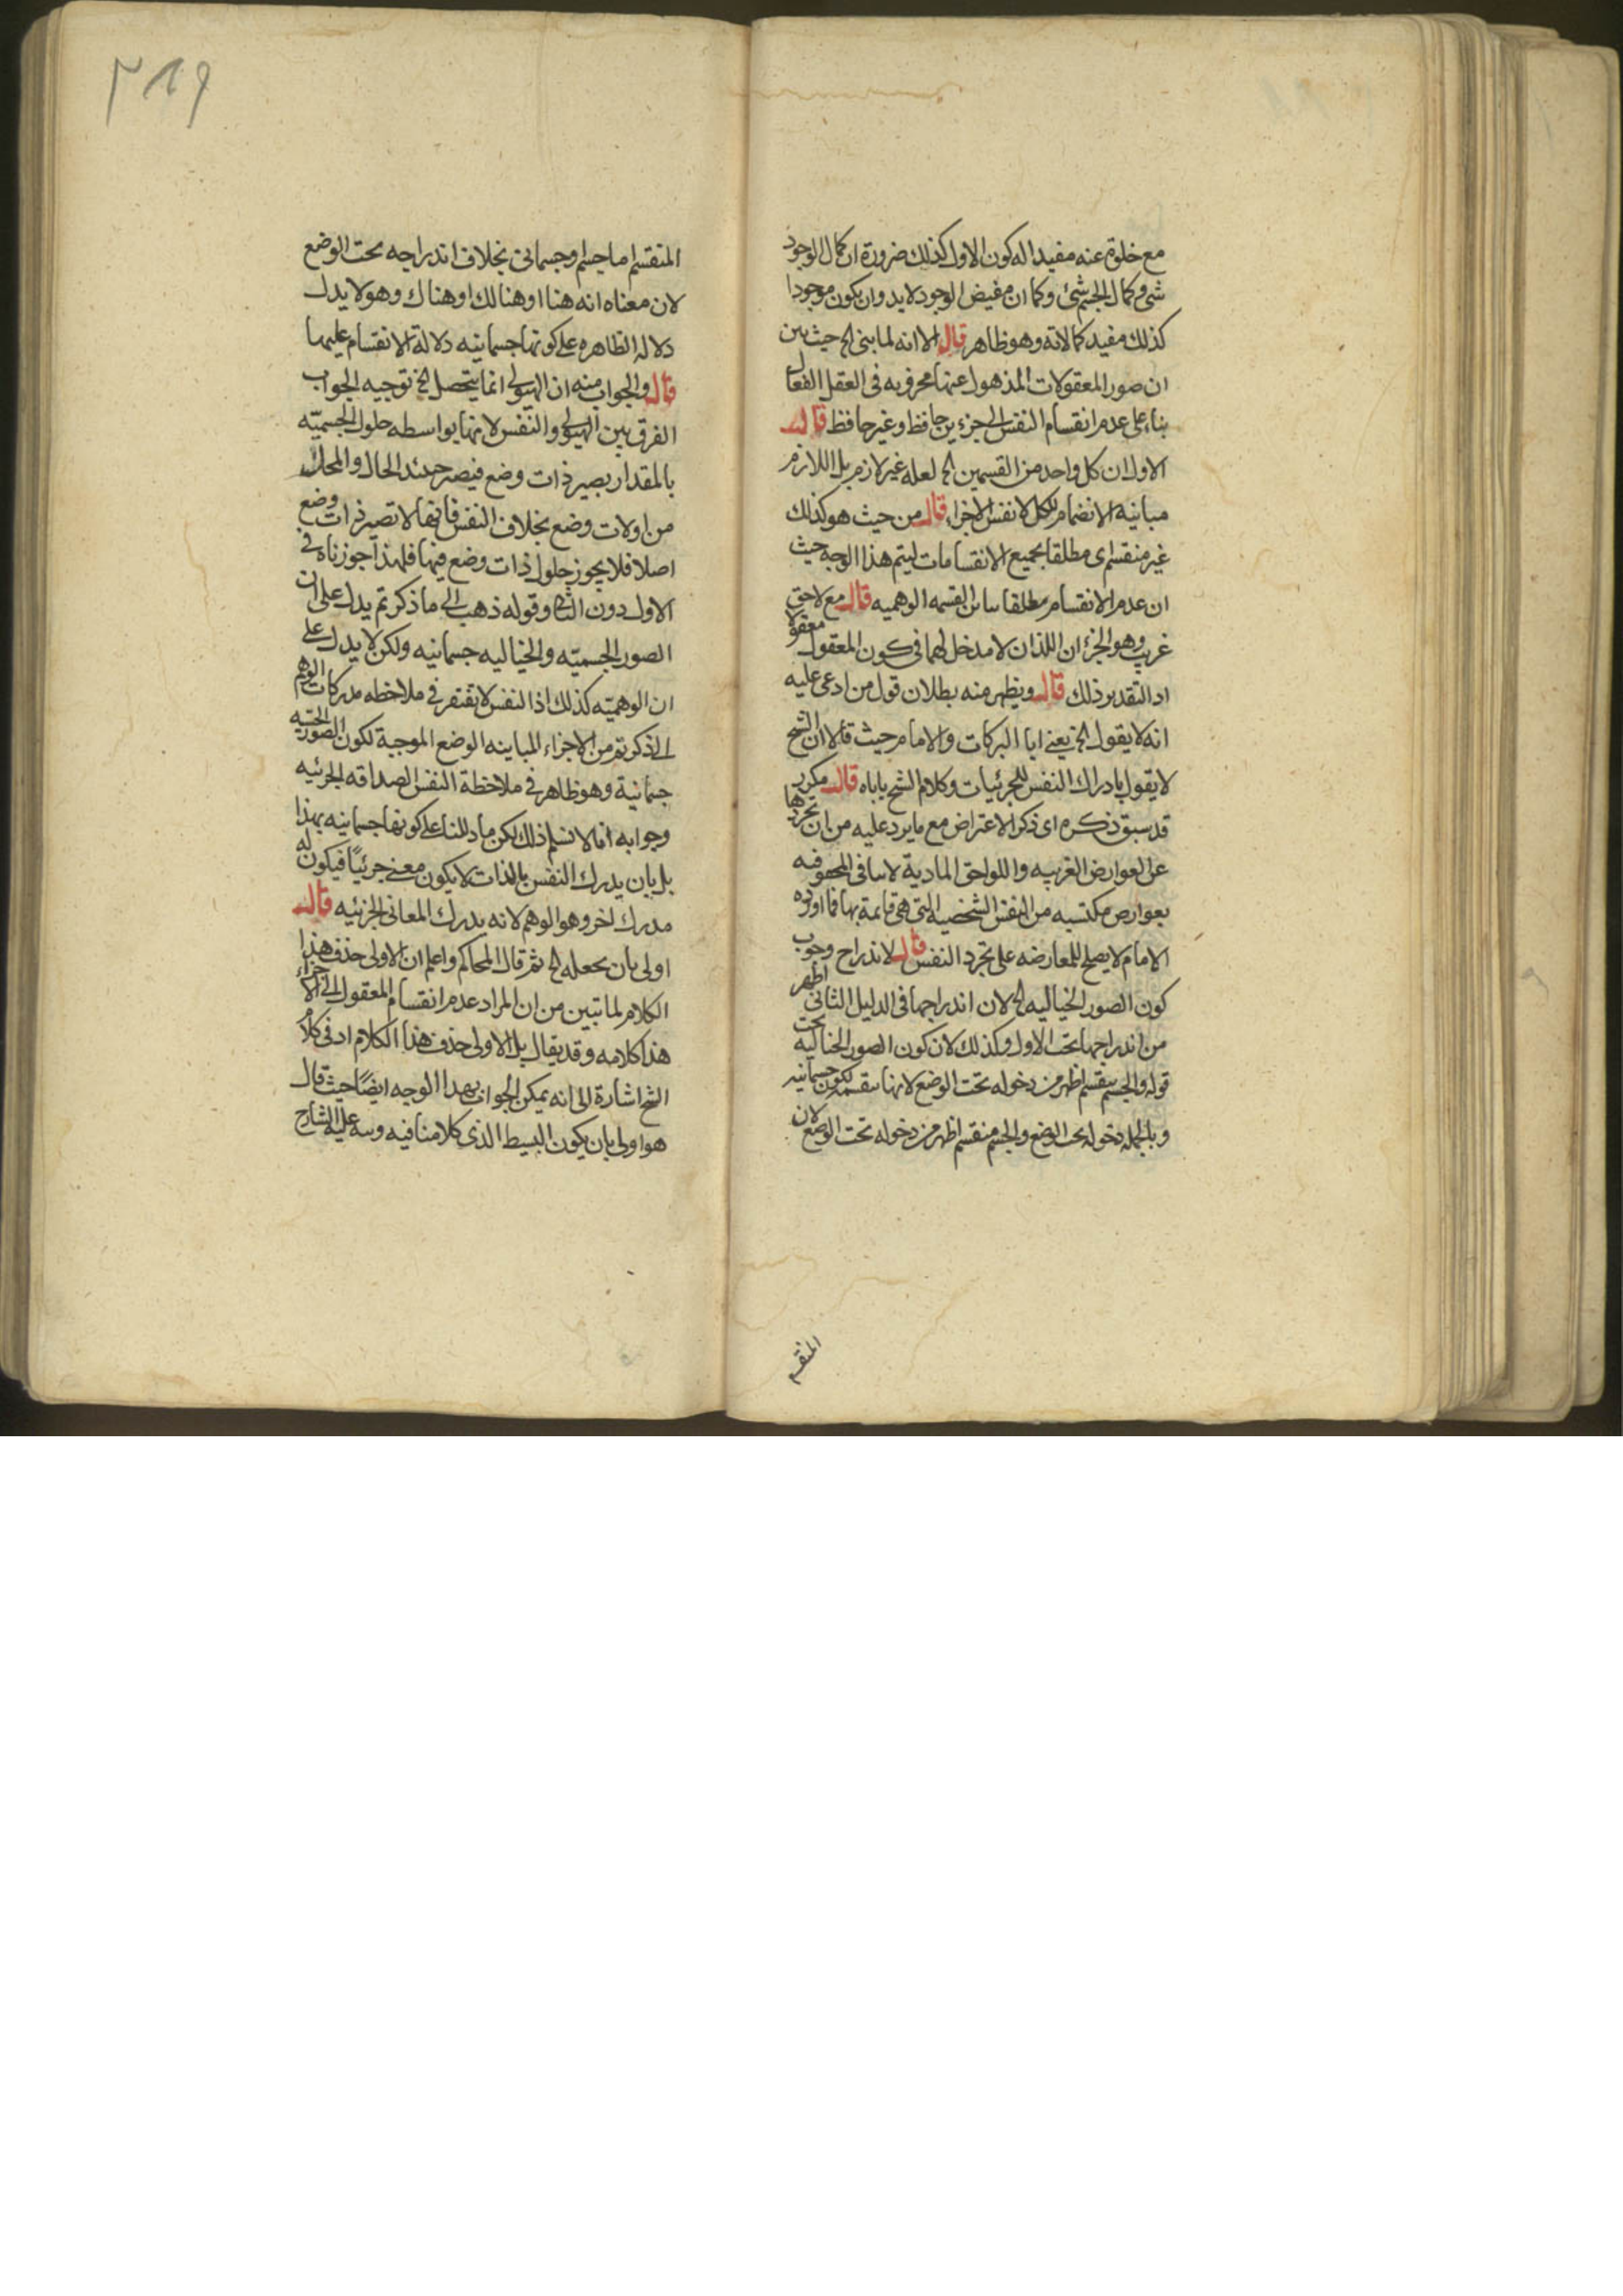 مع خلوه عنه مفيدا له كون الاول كذلك ضرورة ان كمال الوجود
شئ وكمال الجسم شئ وكما ان مفيض الوجود لابد وان يكون موجودا
كذلك مفيد كمالاته وهو ظاهر قال الا انه لما بنى الخ حيث بين
ان صور المعقولات المذهول عنها محزونه فى العقل الفعال
بناء على عدم انقسام النفس الى جزءين حافظ وغير حافظ قال
الاول ان كل واحد من القسمين الخ لعله غير لازم بل اللازم
مباينة الانضمام للكل لا نفس الاجزاء قال من حيث هو كذلك
غير منقسم اى مطلقا بجميع الانقسامات ليتم هذا الوجه حيث
ان عدم الانقسام مطلقا القسمه الوهميه قال مع لاحق
غريب وهو الجزءان اللذان لا مدخل لهما فى كون المعقول معقولا
اذ التقدير ذلك قال ويظهر منه بطلان قول من ادعى عليه
انه لا يقول الخ يعنى ابا البركات والامام حيث قالا ان الشيخ
لا يقول بادراك النفس للجزئيات وكلام الشيخ ياباه قال مكرر
قد سبق ذكره اى ذكر الاعتراض مع ما يرد عليه من ان تجردها
عن العوارض الغريبه واللواحق المادية لا ينافى المحفوفيه
بعوارض مكتسبه من النفس الشخصيه التى هى قايمة بها فما اورده
الامام لا يصلح للمعارضه على تجرد النفس قال لاندراج وجوب
كون الصور الخياليه الخ لان اندراجها فى الدليل الثانى اظهر
من اندراجها تحت الاول وكذلك لان كون الصور الخياليه تحت
قوله والجسم ينقسم اظهر من دخوله تحت الوضع لانها منقسمه لكون جسمانيه
وبالجمله دخوله تحت الوضع والجسم منقسم اظهر من دخوله تحت الوضع لان
المنقسم
٣١٩
المنقسم اما جسم او جسمانى بخلاف اندراجه تحت الوضع
لان معناه انه هنا او هنالك او هناك وهو لا يدل
دلاله الظاهره على كونها جسمانيه دلالة الانقسام عليها
قال والجواب منه ان الهيولى انما يتحصل الخ توجيه الجواب
الفرق بين الهيولى والنفس لانها بواسطه حلول الجسميه
بالمقدار يصير ذات وضع فيصير حينئذ الحال والمحل
من اولات وضع بخلاف النفس فانها لا تصير ذات وضع
اصلا فلا يجوز حلول ذات وضع فيها فلهذا جوزناه فى
الاول دون الثانى وقوله ذهب الى ما ذكرتم يدل على ان
الصور الجسميه والخياليه جسمانيه ولكن لا يدل على
ان الوهميه كذلك اذ النفس لا تفتقر فى ملاحظه مدركات الوهم
الى ذكرتم من الاجزاء المباينه الوضع الموجبة لكون الصور الحسيه
جسمانية وهو ظاهر فى ملاحظة النفس الصداقه الجزئيه
وجوابه انا لا نسلم ذلك لكن ما دللنا على كونها جسمانيه بهذا
بل بان يدرك النفس بالذات لا يكون معنى جزئيا فيكون له
مدرك اخر وهو الوهم لانه يدرك المعانى الجزئيه قال
اولى بان يجعله الخ ثم قال المحاكم واعلم ان الاولى حذف هذا
الكلام لما تبين من ان المراد عدم انقسام المعقول الى الاجزاء
هذا كلامه وقد يقال بل الاولى حذف هذا الكلام اذ فى كلام
الشيخ اشارة الى انه يمكن الجواب بهذا الوجيه ايضا حيث قال
هو اولى بان يكون البسيط الذى كلامنا فيه ونبه عليه الشارح